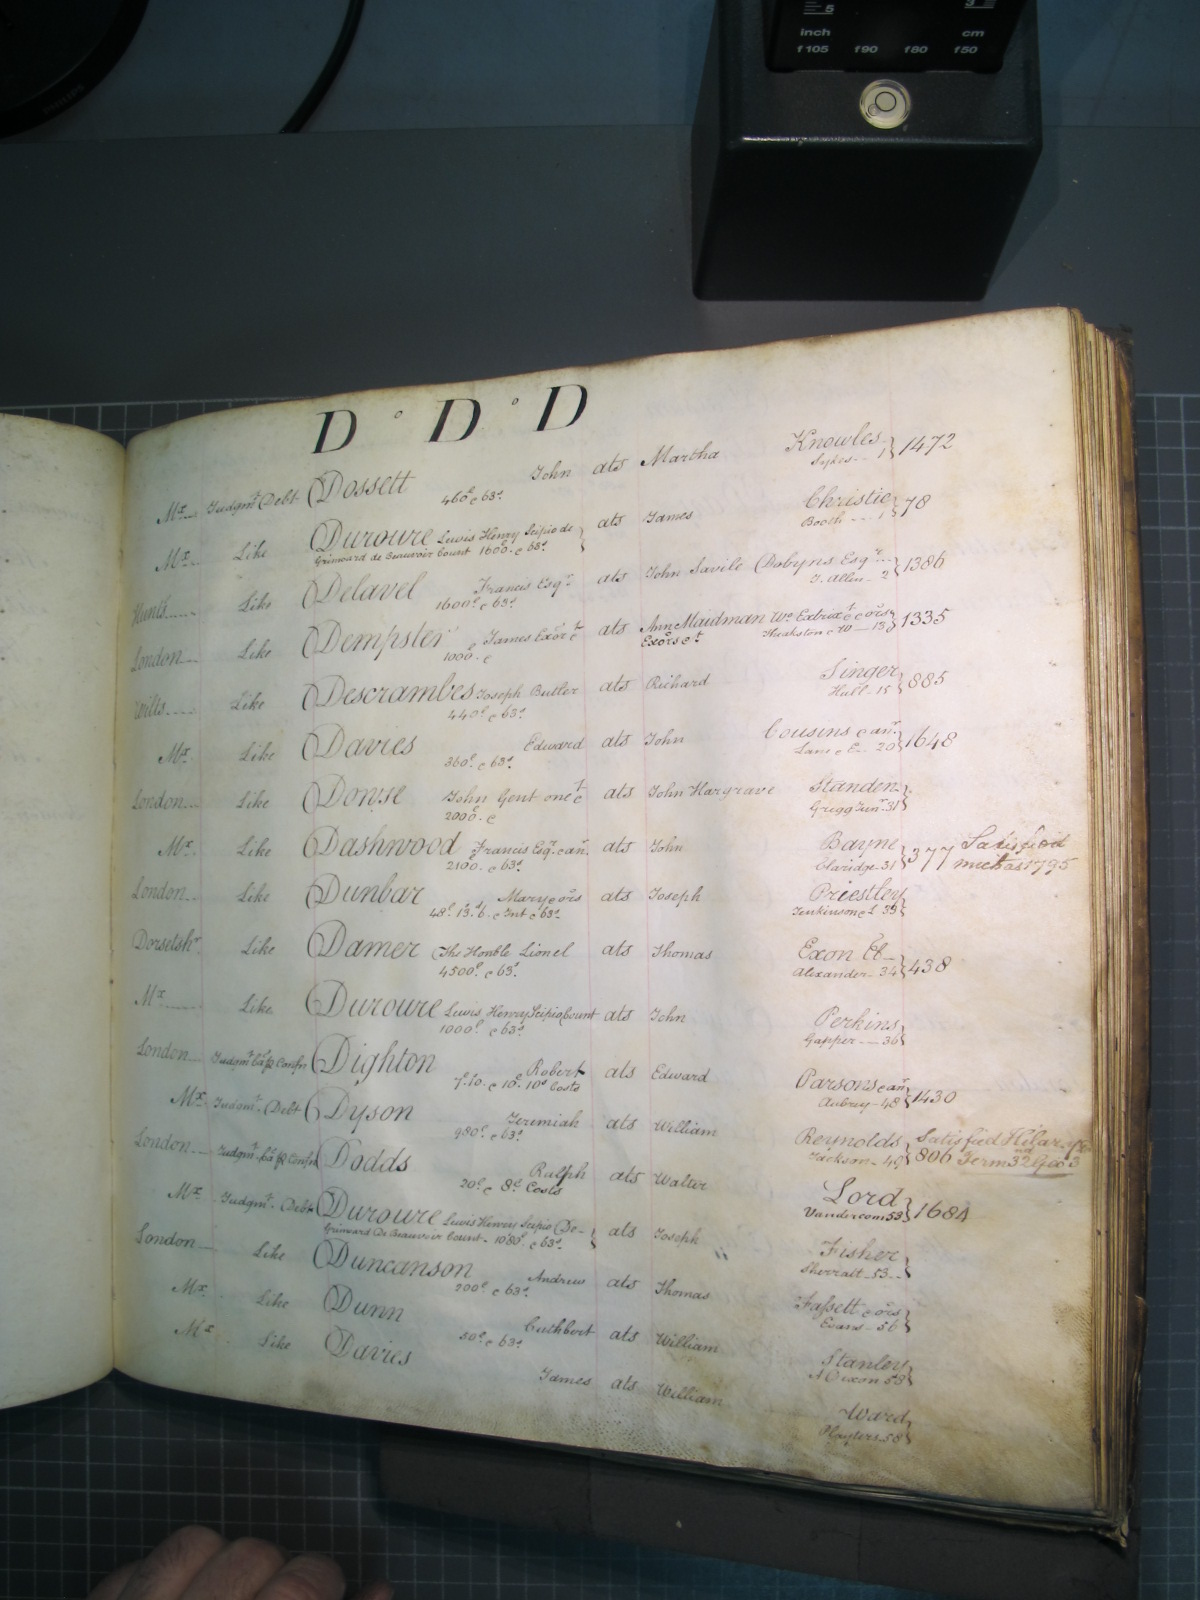 5 3
inch cm
f105 f90 f80 f50
D ° D ° D
Mx Judgmt Debt Dossett John ats Martha Knowles 1472
460£ c 63s. Sykes 1
Mx Like Duroure Lewis Henry Scipio de ats James Christie 78
Grimoard de Beauvoir Count 1600. c 63s. Booth 1
Hunts Like Delavel Francis Esqr ats John Savile Dobyns Esqr 1386
1600£ c 63s. T. Allen 2
London Like Dempster James Exor c t ats Ann Maidman Wo Extrix t c ors 1335
1000. c Exors c t Heahston c W 13
Wilts Like Descrambes Joseph Butler ats Richard Singer 885
440£ c 63s. Hull 15
Mx Like Davies Edward ats John Cousins c anr. 1648
360£ c 63s. Lane c E 20
London Like Dowse John Gent one c t ats John Hargrave Standen
2000. c Grigg Junr 31
Mx Like Dashwood Francis Esqr. c anr. ats John Bayne 377 Satisfied
2100. c 63s. Claridge 31 Michas 1795
London Like Dunbar Mary c ors ats Joseph Priestley
48£. 13. 6. c Int c 63s. Jenkinson c L 33
Dorsetshr Like Damer The Honble Lionel ats Thomas Exon Cl 438
4500£ c 63s. Alexander 34
Mx Like Duroure Lewis Henry Scipio Count ats John Perkins
1000£ c 63s. Gapper 36
London Judgmt Dighton Robert ats Edward Parsons c anr 1430
7. 10. c 10. 10s Costs Aubrey 48
Mx Judgmt. Debt Dyson Jeremiah ats William Reynolds 806 Satisfied Hilary
980£ c 63s. Jackson 49 Term 32nd Geo 3
London Judgmt. Dodds Ralph ats Walter Lord 1684
20£ c 8d Costs Vandercom 53
Mx Judgmt. Debt Duroure Lewis Henry Scipio De ats Joseph Fisher
Grimoard De Beauvoir Count 1080£. c 63s. Sherratt 53
London Like Duncanson Andrew ats Thomas Fassett c ors
200£ c 63s. Evans 56
Mx Like Dunn Cuthbert ats William Stanley
50£ c 63s. Dixon 58
Mx Like Davies James ats William Ward
Players 58